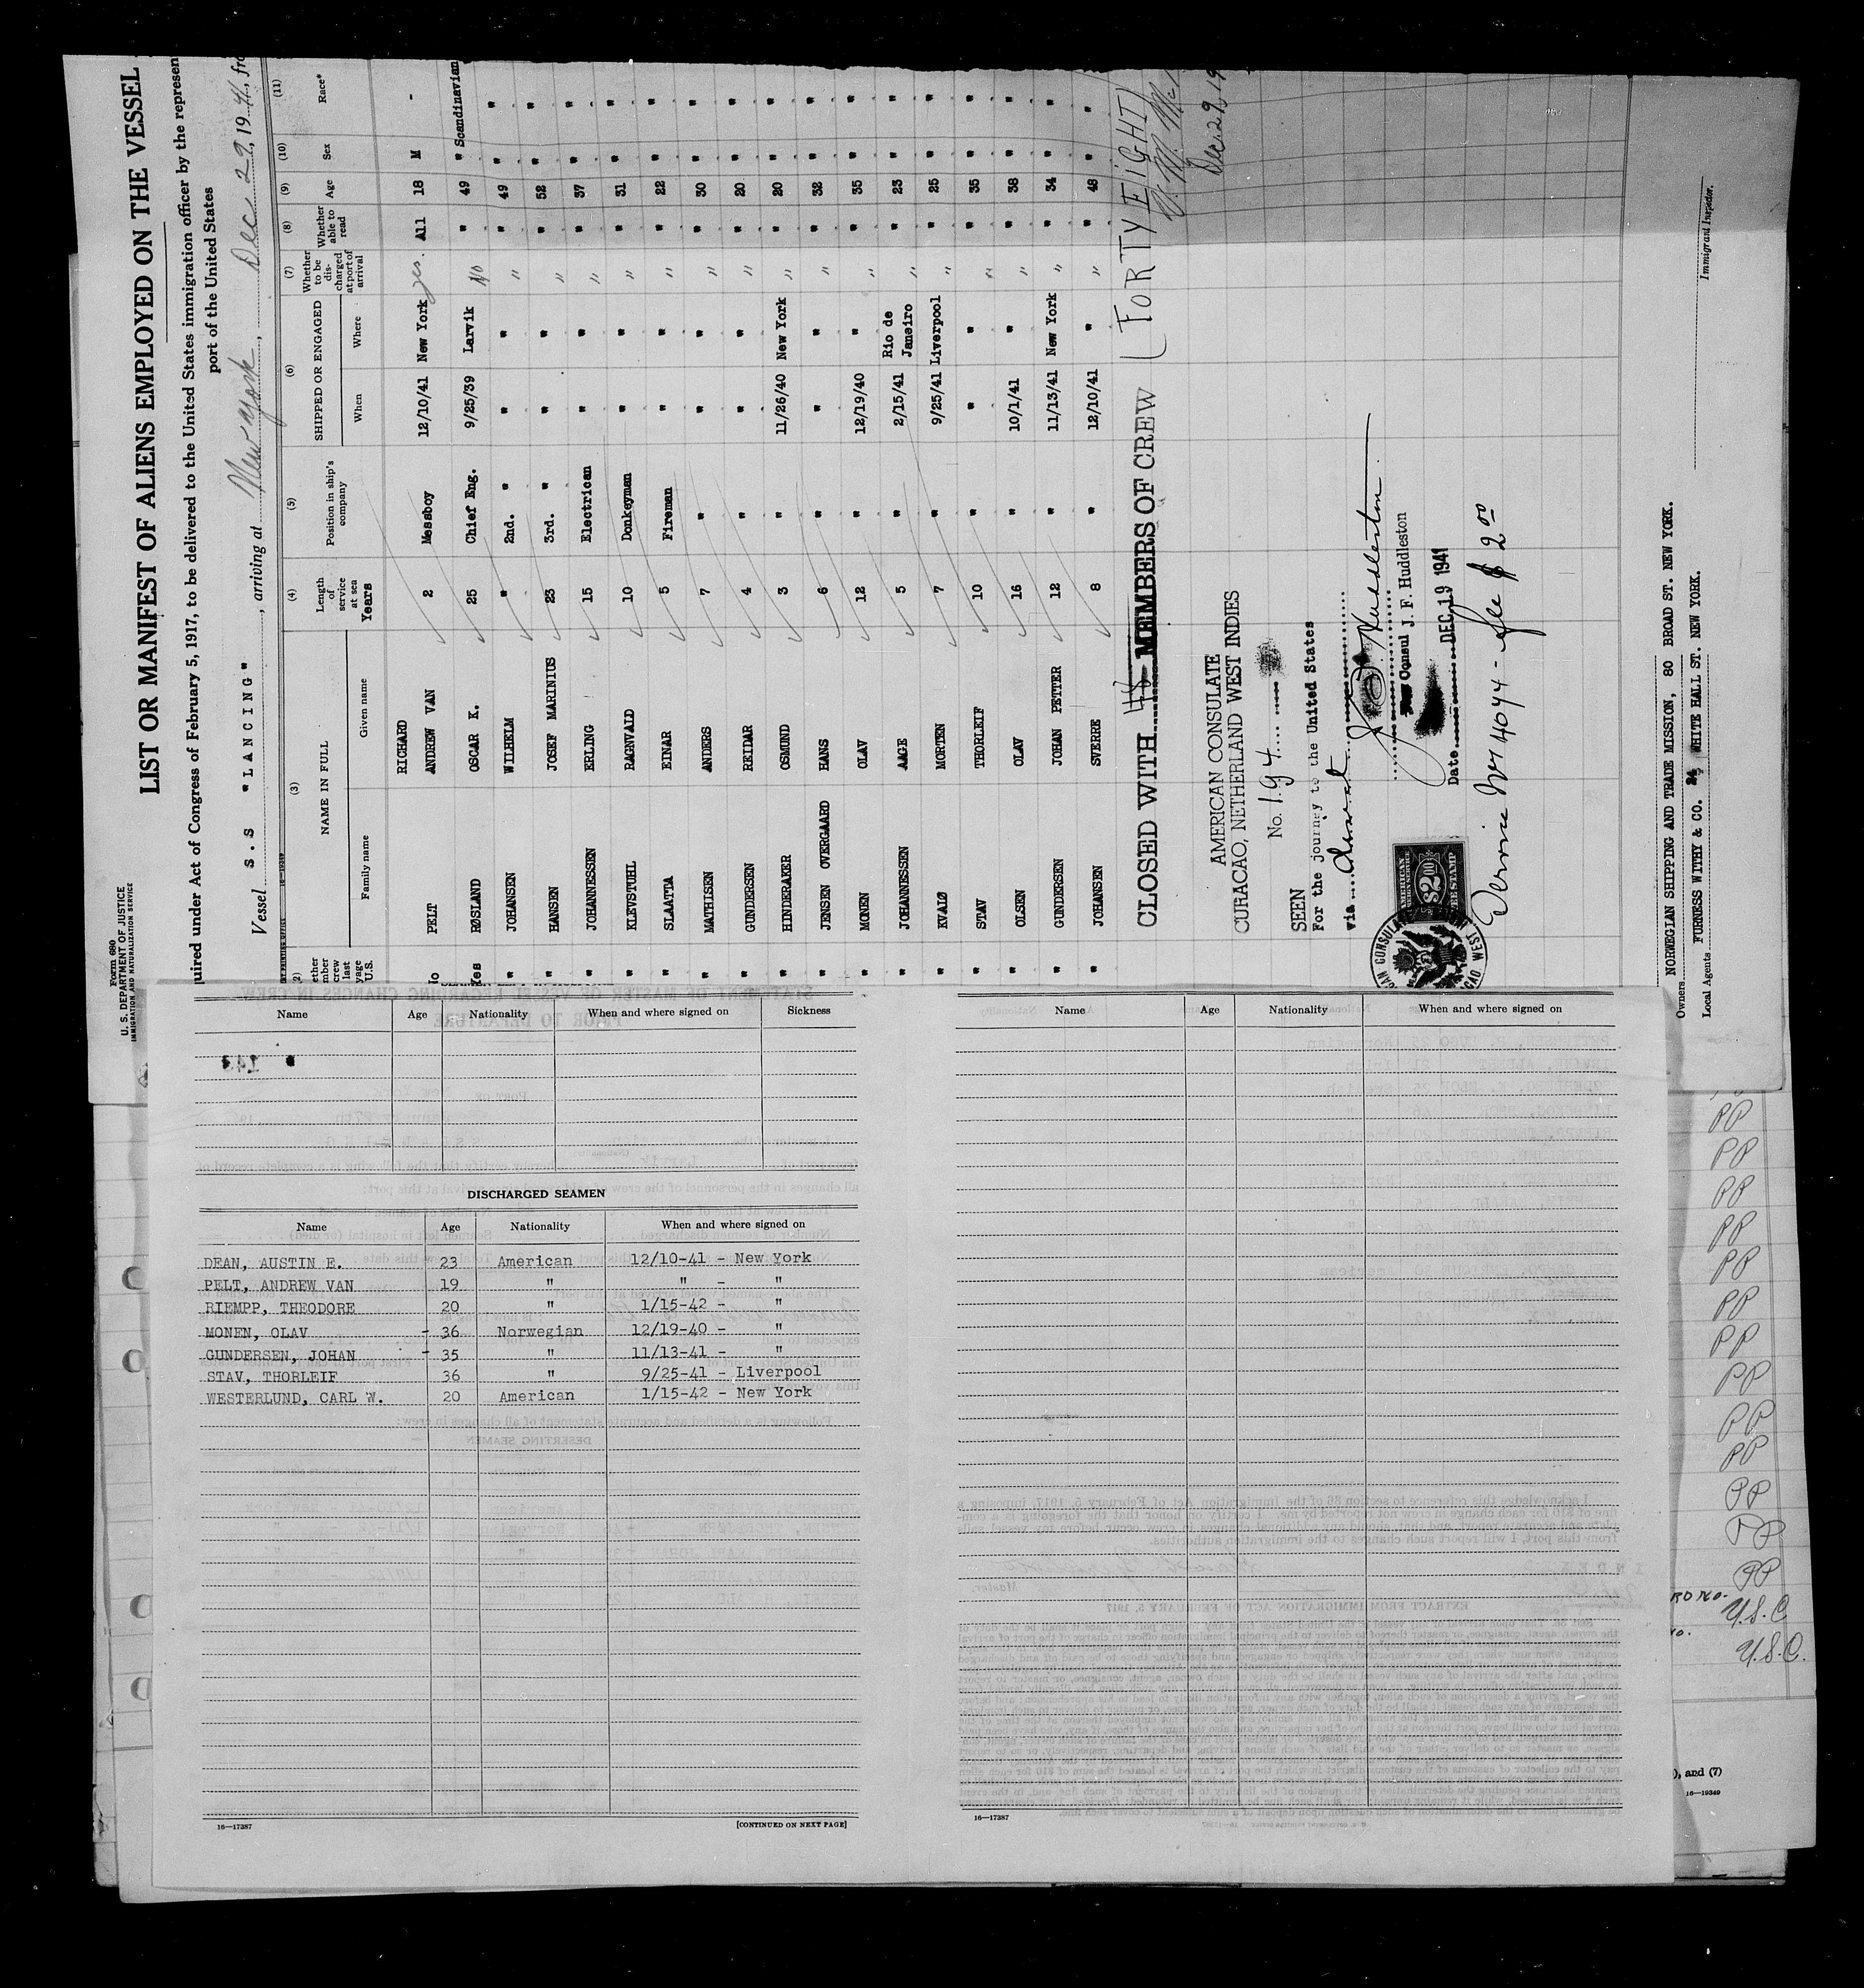 Form 680
U. S. DEPARTMENT OF JUSTICE
IMMIGRATION AND NATURALIZATION SERVICE
LIST OR MANIFEST OF ALIENS EMPLOYED ON THE VESSEL
uired under Act of Congress of February 5, 1917, to be delivered to the United States immigration officer by the represen
port of the United States
Vessel S.S "LANCING", arriving at New York, Dec 29, 1941, fro
(2) (3) (4) (5) (6) (7) (8) (9) (10) (11)
ether mber crew last yage U.S. NAME IN FULL Length of service at sea Years Position in ship's company SHIPPED OR ENGAGED Whether to be discharged at port of arrival Whether able to read Age Sex Race*
Family name Given name When Where
No PELT RICHARD ANDREW VAN 2 Messboy 12/10/41 New York yes All 18 M -
Yes ROSLAND OSCAR K. 25 Chief Eng. 9/25/39 Larvik No " 49 " Scandinavian
" JOHANSEN WILHELM " 2nd. " " " " " 49 " "
" HANSEN JOSEF MARINIUS 23 3rd. " " " " " 52 " "
" JOHANNESSEN ERLING 15 Electrican " " " " 37 " "
" KLEVSTUHL RAGNVALD 10 Donkeyman " " " " 31 " "
" SLAATTA EINAR 5 Fireman " " " " 22 " "
" MATHISEN ANDERS 7 " " " " " 30 " "
" GUNDERSEN REIDAR 4 " " " " " 20 " "
" HINDERAKER OSMUND 3 " 11/26/40 New York " " 20 " "
" JENSEN OVERGAARD HANS 6 " " " " " 32 " "
" MONEN OLAV 12 " 12/19/40 " " " 35 " "
" JOHANNESSEN AAGE 5 " 2/15/41 Rio de Janeiro " " 23 " "
" KVALØ MORTEN 7 " 9/25/41 Liverpool " " 25 " "
" STAV THORLEIF 10 " " " " " 35 " "
" OLSEN OLAV 16 " 10/1/41 " " " 38 " "
" GUNDERSEN JOHAN PETTER 12 " 11/13/41 New York " " 34 " "
" JOHANSEN SVERRE 8 " 12/10/41 " " " 48 " "
CLOSED WITH 48 MEMBERS OF CREW (FORTY EIGHT)
Dec. 29, 19
AMERICAN CONSULATE
CURACAO, NETHERLAND WEST INDIES
No. 194
SEEN
For the journey to the United States
via direct
J. F. Huddleston
Consul J. F. Huddleston
Date DEC 19 1941
AMERICAN
$2.00
FEE STAMP
Service No 4094 - fee $ 2 00
Owners NORWEGIAN SHIPPING AND TRADE MISSION, 80 BROAD ST. NEW YORK.
Local Agents FURNESS WITHY & CO. 24 WHITE HALL ST. NEW YORK.
Immigrant Inspector.
Name Age Nationality When and where signed on Sickness
DISCHARGED SEAMEN
Name Age Nationality When and where signed on
DEAN, AUSTIN E. 23 American 12/10-41 - New York
PELT, ANDREW VAN 19 " " - "
RIEMPP, THEODORE 20 " 1/15-42 - "
MONEN, OLAV - 36 Norwegian 12/19-40 - "
GUNDERSEN, JOHAN - 35 " 11/13-41 - "
STAV, THORLEIF 36 " 9/25-41 - Liverpool
WESTERLUND, CARL W. 20 American 1/15-42 - New York
16—17387
[CONTINUED ON NEXT PAGE]
Name Age Nationality When and where signed on
16—17387
PP
PP
PP
PP
PP
PP
PP
PP
PP
PP
PP
PP
PP
U.S.C
U.S.C.
), and (7)
16—19349